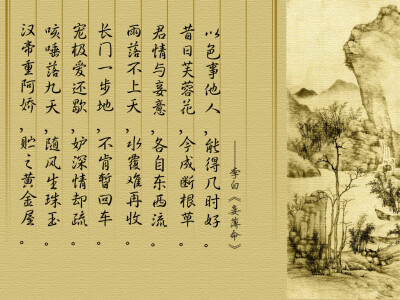 汉帝重阿娇,贮之黄金屋。
咳唾落九天,随风生珠玉。
宠极爱还歇,妒深情却疏。
长门一步地,不肯暂回车。
雨落不上天,水覆难再收。
君情与妾意,各自东西流。
昔日芙蓉花,今成断根草。
以色事他人,能得几时好。
——李白《妾薄命》